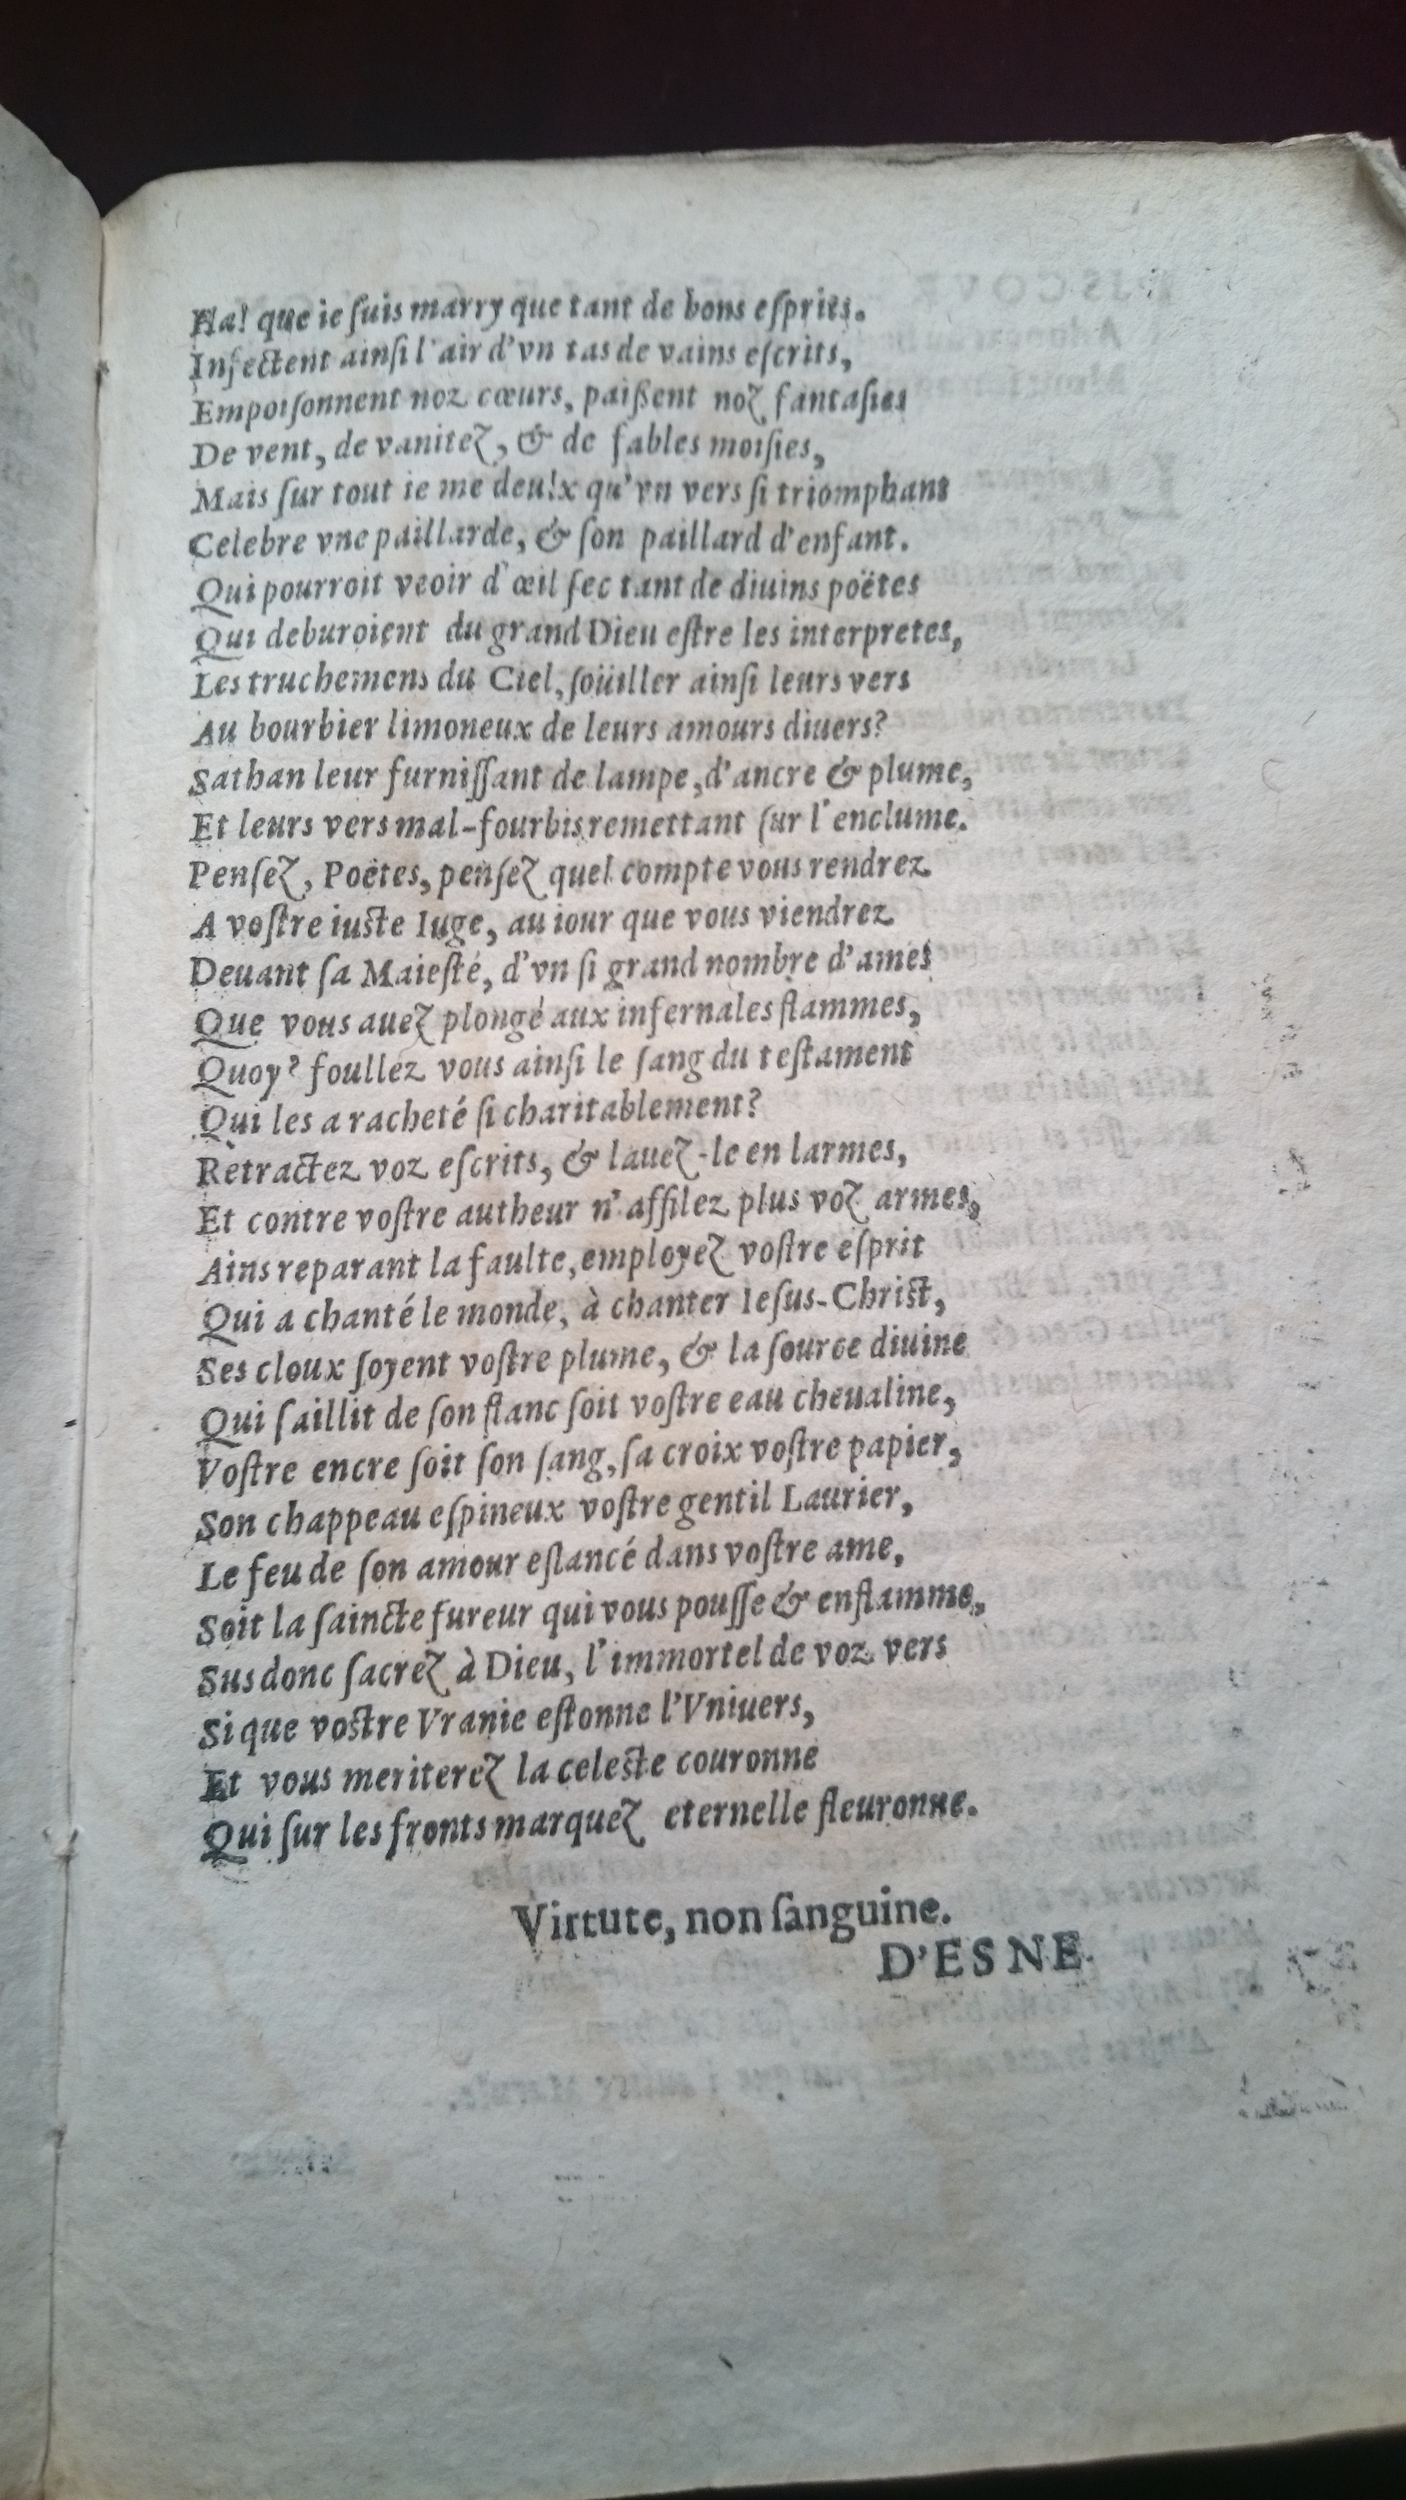 Ha! que ie ſuis marry que tant de bons eſprits.
Infectent ainſi l'air d'vn tas de vains eſcrits,
Empoiſonnent noz cœurs, paißent noz fantaſies
De vent, de vanitez, & de fables moiſies,
Mais ſur tout ie me deulx qu'vn vers ſi triomphant
Celebre vne paillarde, & ſon paillard d'enfant.
Qui pourroit veoir d'œil ſec tant de diuins poëtes
Qui deburoient du grand Dieu eſtre les interpretes,
Les truchemens du Ciel, ſoüiller ainſi leurs vers
Au bourbier limoneux de leurs amours diuers?
Sathan leur furniſſant de lampe, d'ancre & plume,
Et leurs vers mal-fourbis remettant ſur l'enclume.
Penſez, Poëtes, penſez quel compte vous rendrez
A voſtre iuſte Iuge, au iour que vous viendrez
Deuant ſa Maieſté, d'vn ſi grand nombre d'ames
Que vous auez plongé aux infernales flammes,
Quoy? foullez vous ainſi le ſang du teſtament
Qui les a racheté ſi charitablement?
Retractez voz eſcrits, & lauez-le en larmes,
Et contre voſtre autheur n'affilez plus voz armes,
Ains reparant la faulte, employez voſtre eſprit
Qui a chanté le monde, à chanter Ieſus-Chriſt,
Ses cloux ſoyent voſtre plume, & la ſource diuine
Qui ſaillit de ſon flanc ſoit voſtre eau cheualine,
Voſtre encre ſoit ſon ſang, ſa croix voſtre papier,
Son chappeau eſpineux voſtre gentil Laurier,
Le feu de ſon amour eſlancé dans voſtre ame,
Soit la ſaincte fureur qui vous pouſſe & enflamme,
Sus donc ſacrez à Dieu, l'immortel de voz vers
Si que voſtre Vranie eſtonne l'Vniuers,
Et vous meriterez la celeſte couronne
Qui ſur les fronts marquez eternelle fleuronne.
Virtute, non ſanguine.
D'ESNE.